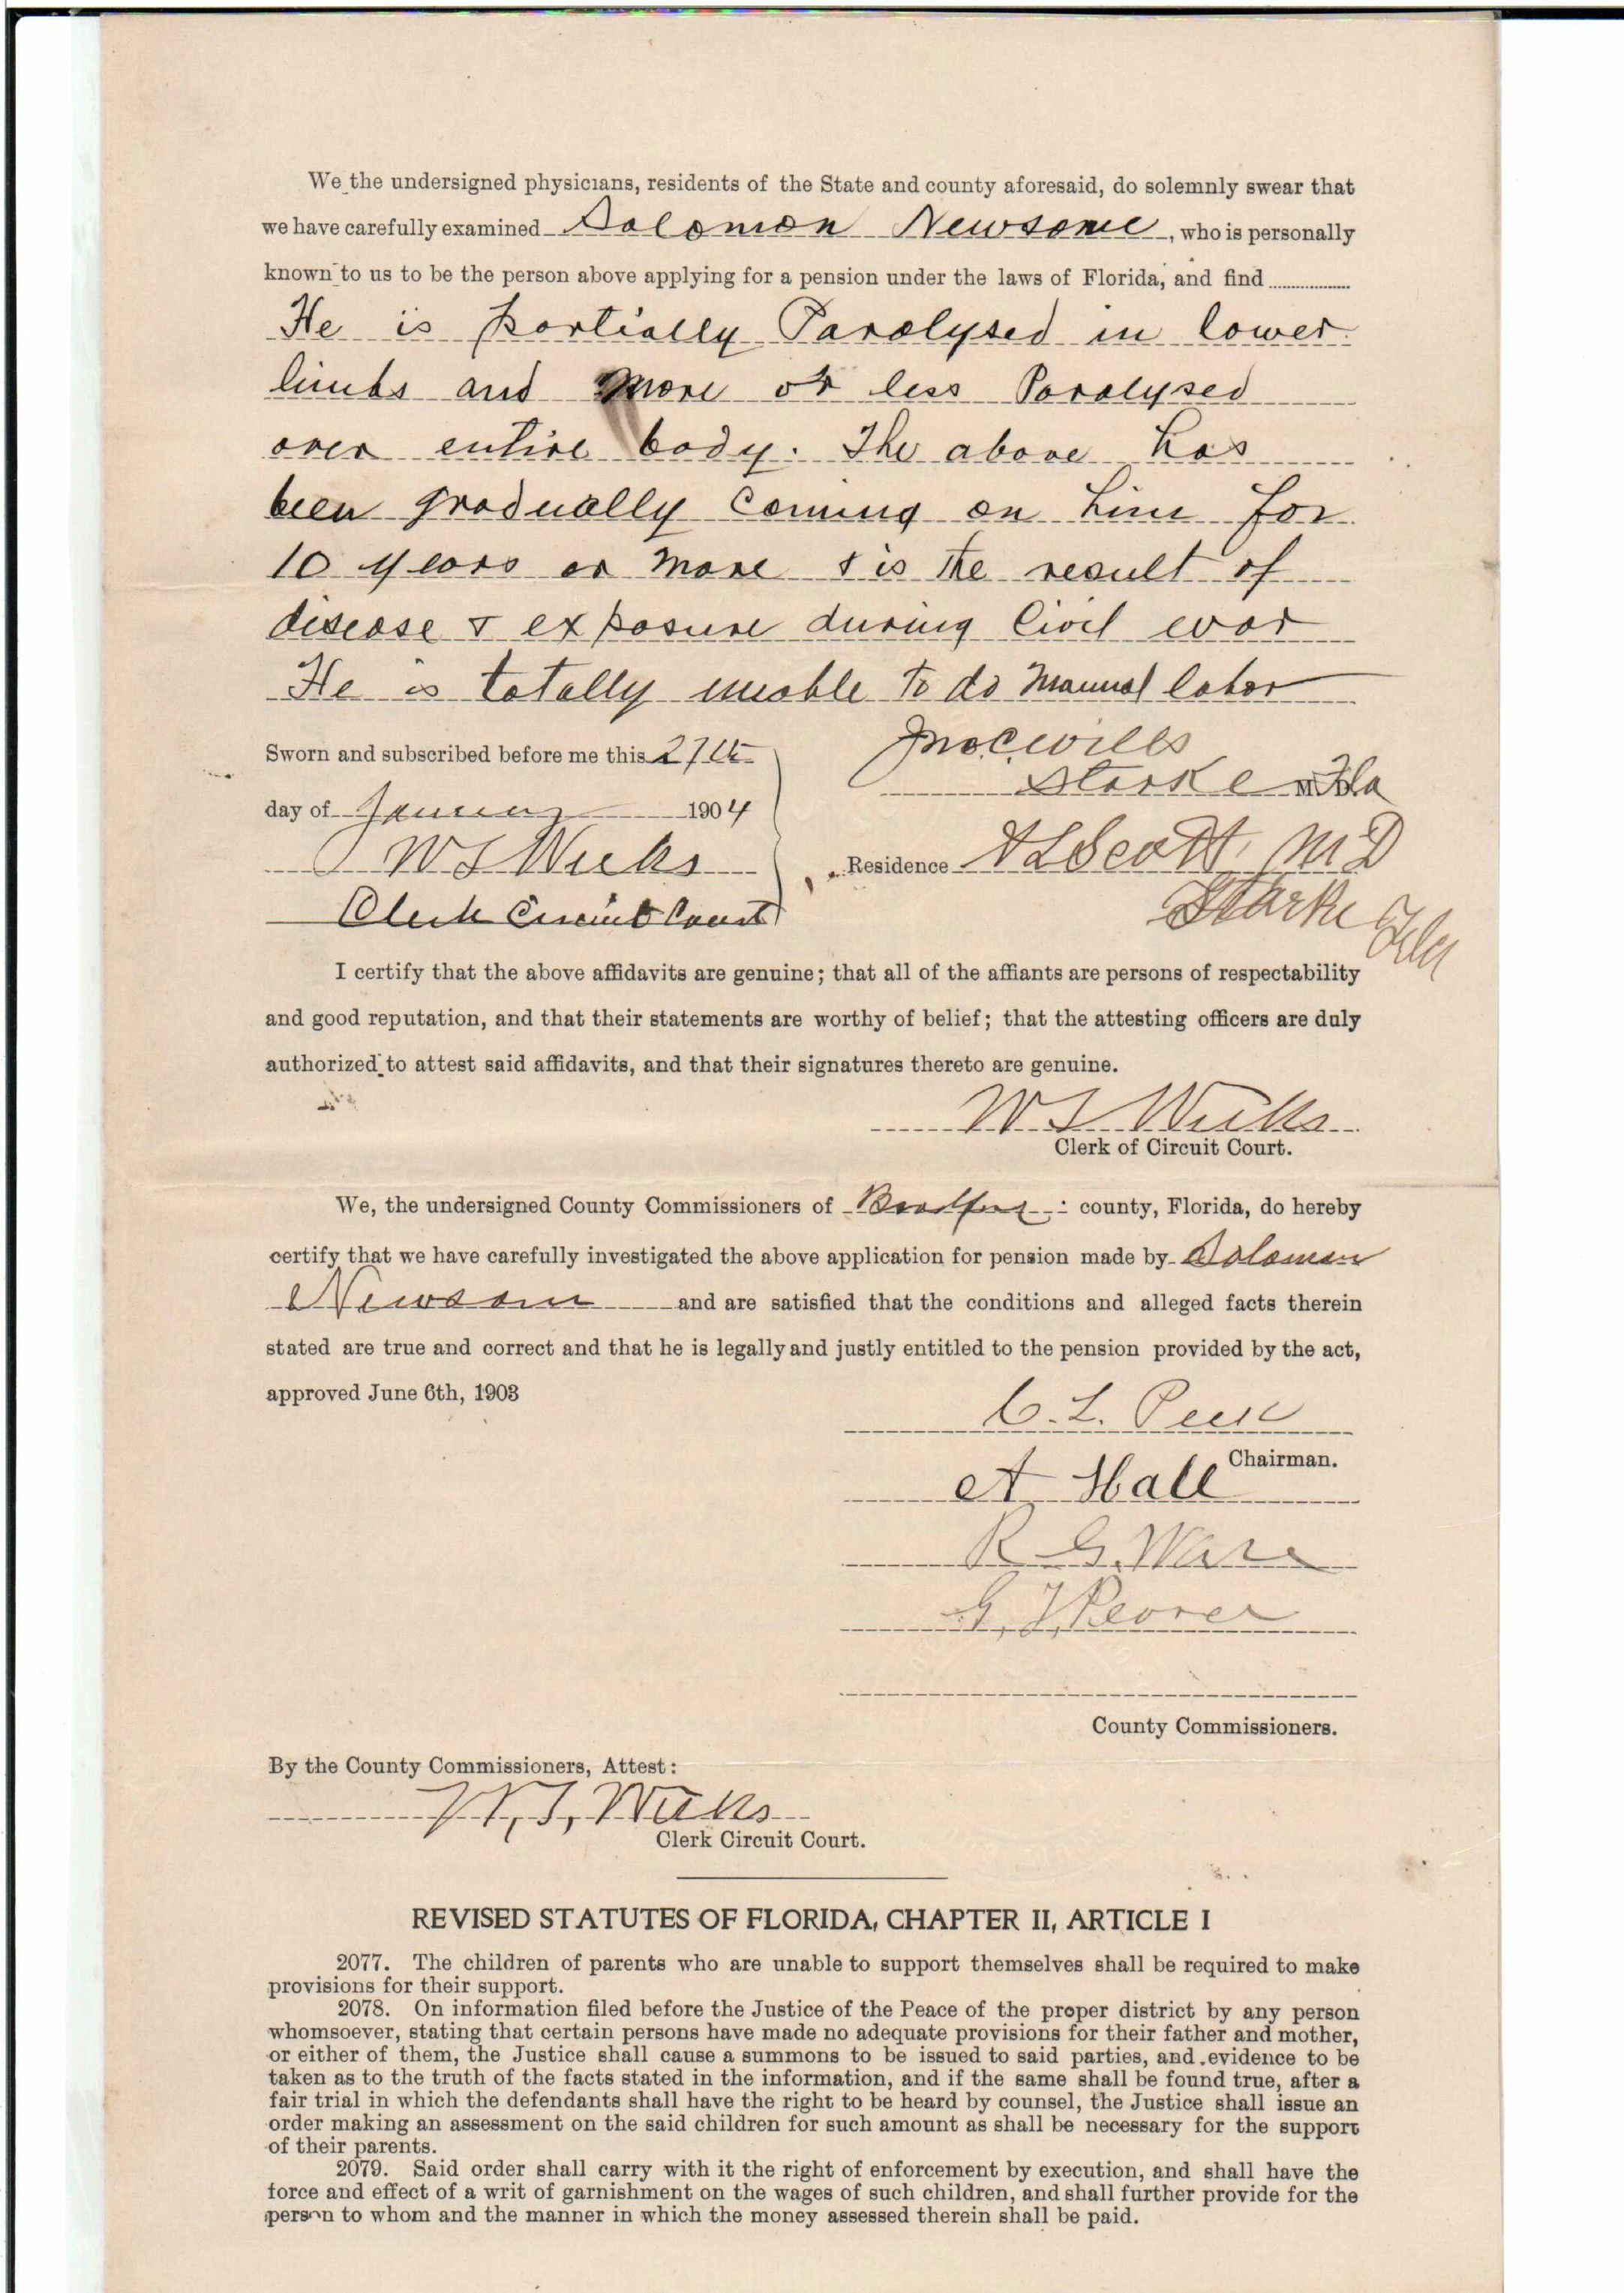 We the undersigned physicians, residents of the State and county aforesaid, do solemnly swear that
we have carefully examined Solomon Newsome, who is personally
known to us to be the person above applying for a pension under the laws of Florida, and find
He is partially Paralysed in lower
limbs and more or less Paralysed
over entire body. The above has
been gradually coming on him for
10 years or more & is the result of
disease & exposure during Civil war
He is totally unable to do Manual labor
Sworn and subscribed before me this 27th
day of January 1904
W S Weeks
Clerk Circuit Court
Jno C Wills
Starke Fla
Residence A L Scott, M D
Starke Fla
I certify that the above affidavits are genuine; that all of the affiants are persons of respectability
and good reputation, and that their statements are worthy of belief; that the attesting officers are duly
authorized to attest said affidavits, and that their signatures thereto are genuine.
W S Weeks
Clerk of Circuit Court.
We, the undersigned County Commissioners of Bradford county, Florida, do hereby
certify that we have carefully investigated the above application for pension made by Solomon
Newsom and are satisfied that the conditions and alleged facts therein
stated are true and correct and that he is legally and justly entitled to the pension provided by the act,
approved June 6th, 1903
C. L. Peek
Chairman.
A Hall
R G. Ware
G. T.
County Commissioners.
By the County Commissioners, Attest:
W. S. Weeks
Clerk Circuit Court.
REVISED STATUTES OF FLORIDA, CHAPTER II, ARTICLE I
2077. The children of parents who are unable to support themselves shall be required to make
provisions for their support.
2078. On information filed before the Justice of the Peace of the proper district by any person
whomsoever, stating that certain persons have made no adequate provisions for their father and mother,
or either of them, the Justice shall cause a summons to be issued to said parties, and evidence to be
taken as to the truth of the facts stated in the information, and if the same shall be found true, after a
fair trial in which the defendants shall have the right to be heard by counsel, the Justice shall issue an
order making an assessment on the said children for such amount as shall be necessary for the support
of their parents.
2079. Said order shall carry with it the right of enforcement by execution, and shall have the
force and effect of a writ of garnishment on the wages of such children, and shall further provide for the
person to whom and the manner in which the money assessed therein shall be paid.